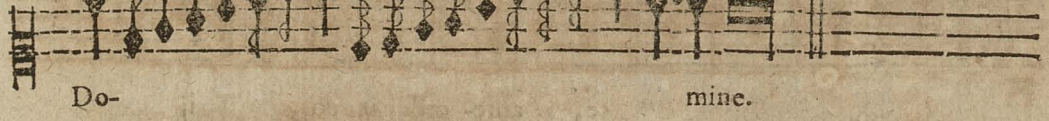 Do- mine.